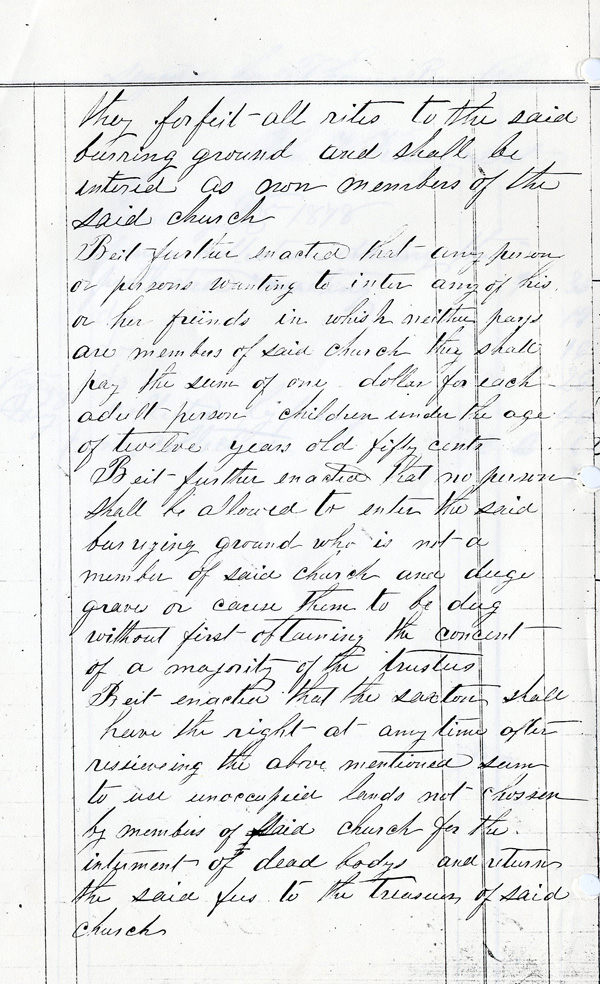 they forfeit all rites to the said
burring ground and shall be
intered as non members of the
said church
Beit further enacted that any person
or persons wanting to inter any of his
or her freinds in which neither parys
are members of said church they shall
pay the sum of one dollar for each
adult person children under the age
of twelve years old fifty cents
Beit further enacted that no person
shall be allowed to enter the said
burrying ground who is not a
member of said church and duge
graves or cause them to be dug
without first obtaining the concent
of a majority of the trustees
Beit enacted that the sexton shall
have the right at any time after
ressieveing the above mentioned sum
to use unoccupied lands not chossen
by members of said church for the
interment of dead bodys and return
the said fees to the treasury of said
church